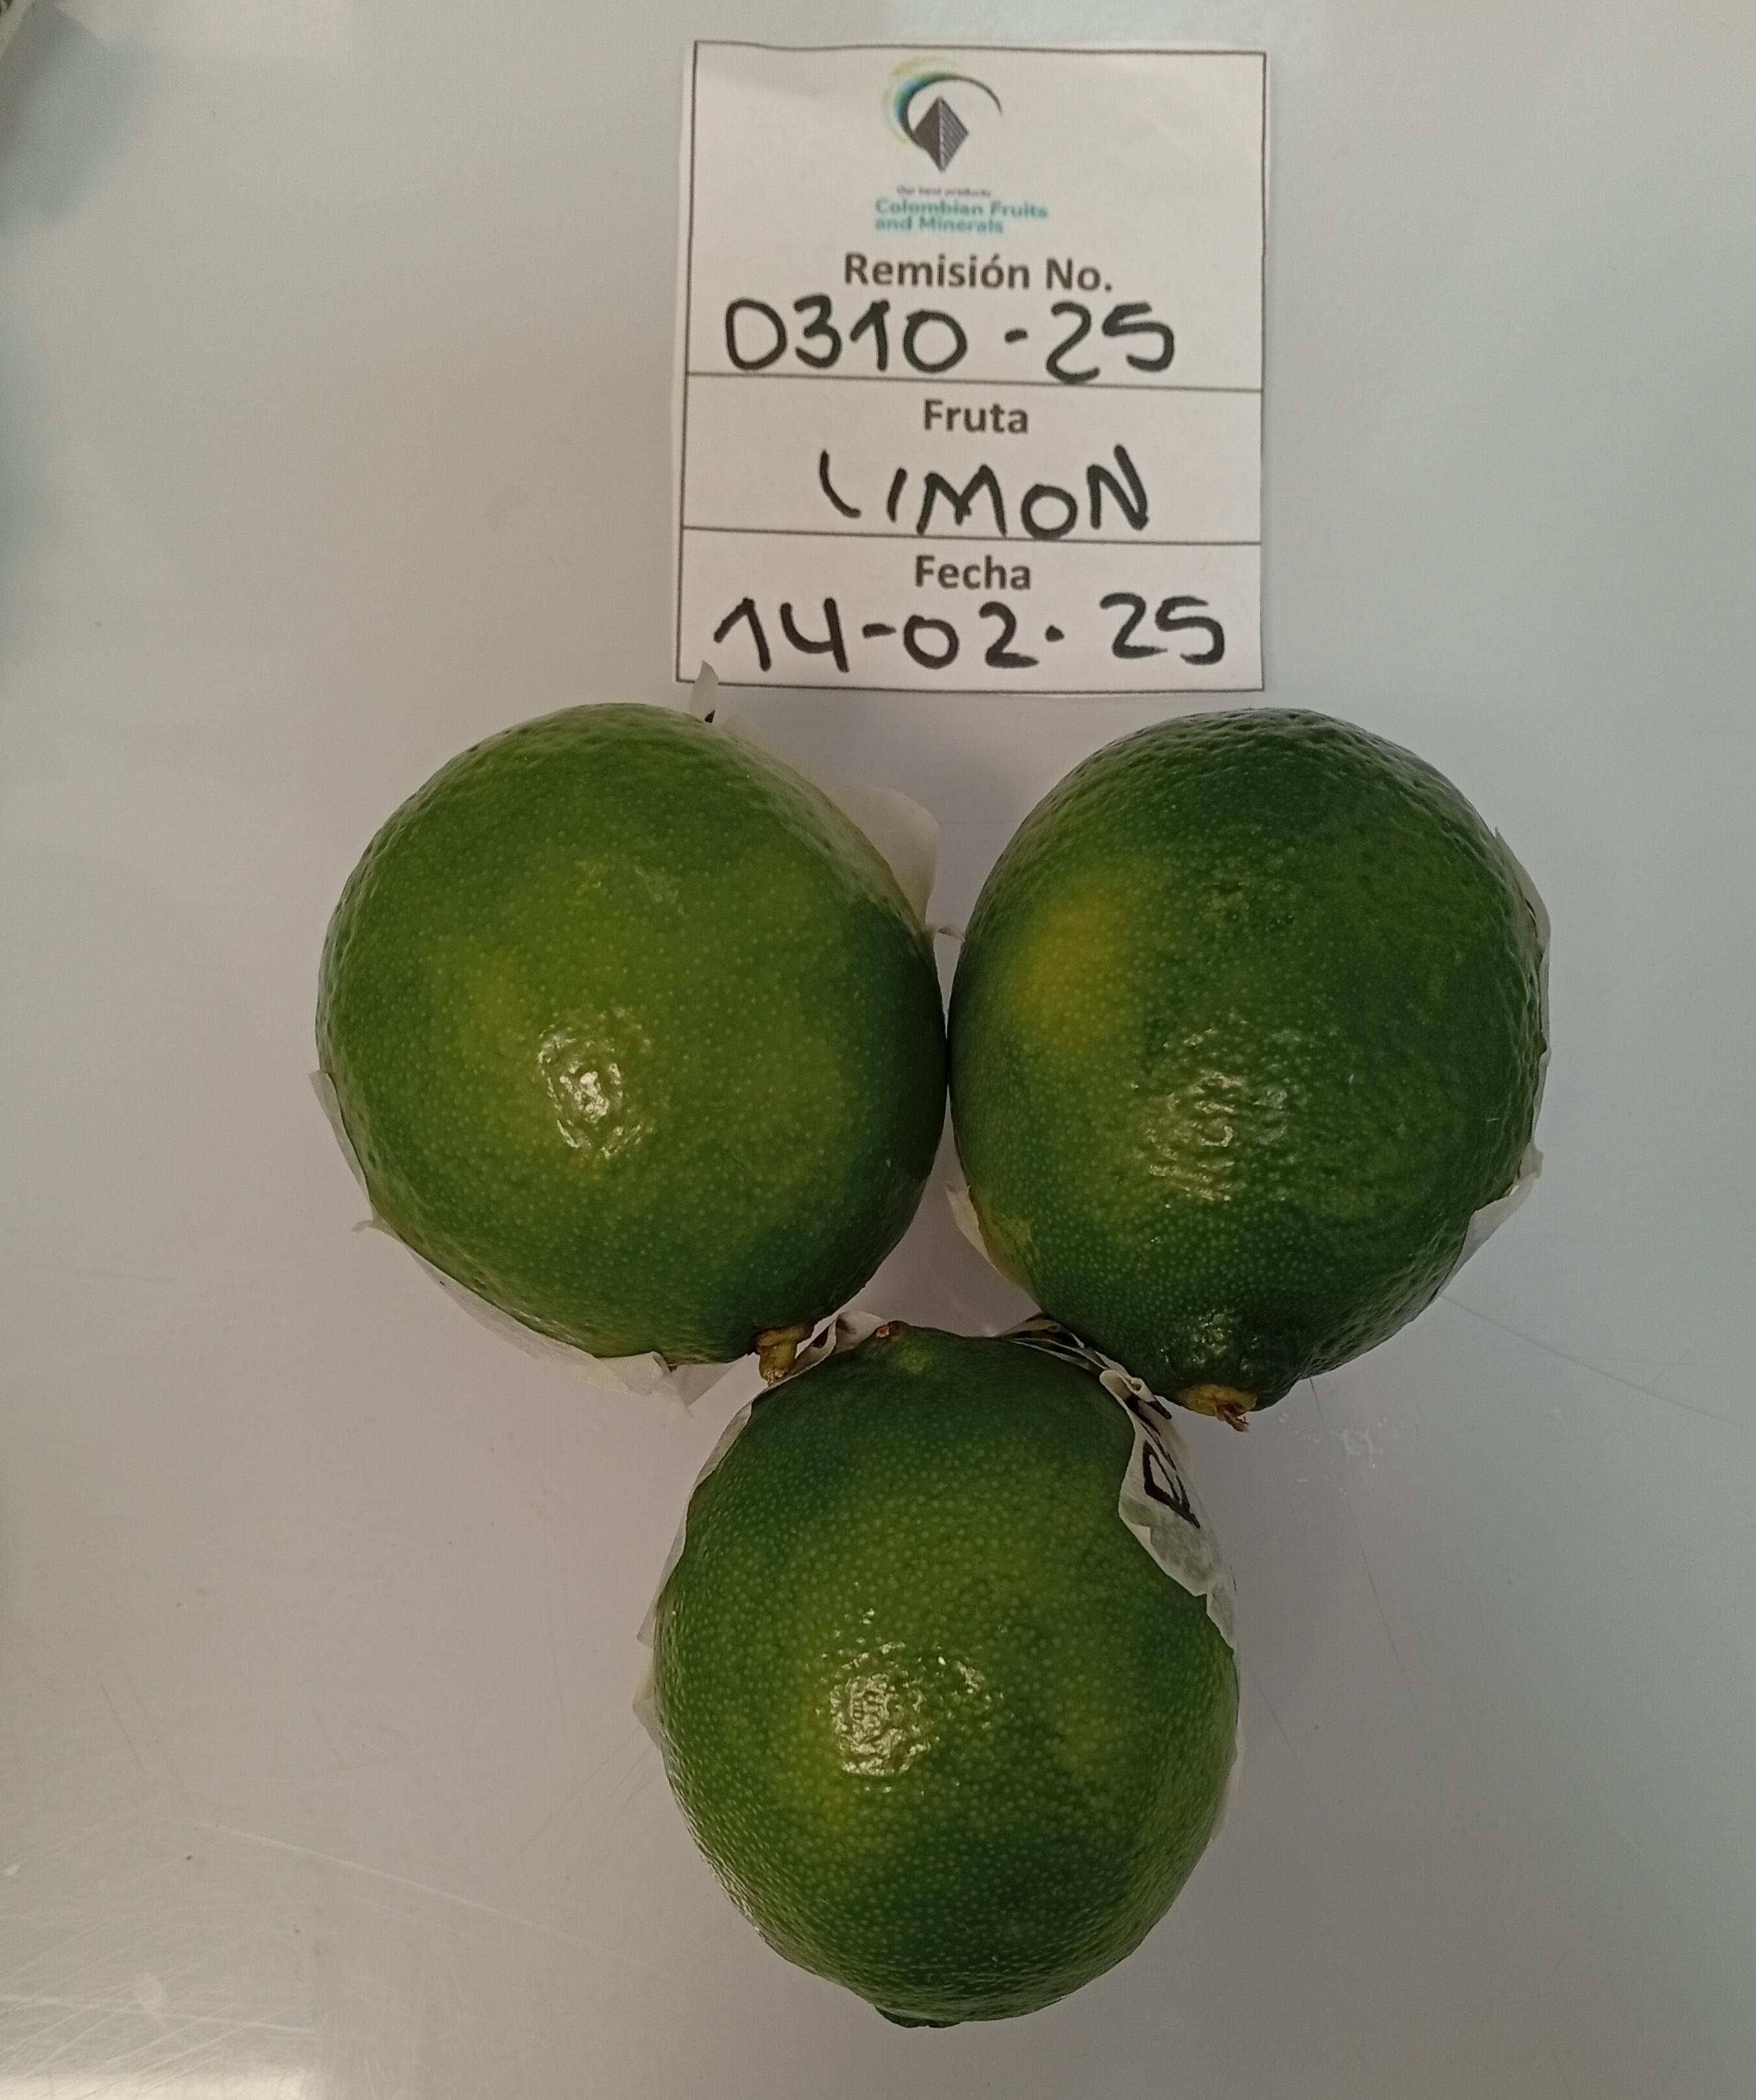 Our best products
Colombian Fruits
and Minerals
Remisión No.
0310-25
Fruta
LIMON
Fecha
14-02.25